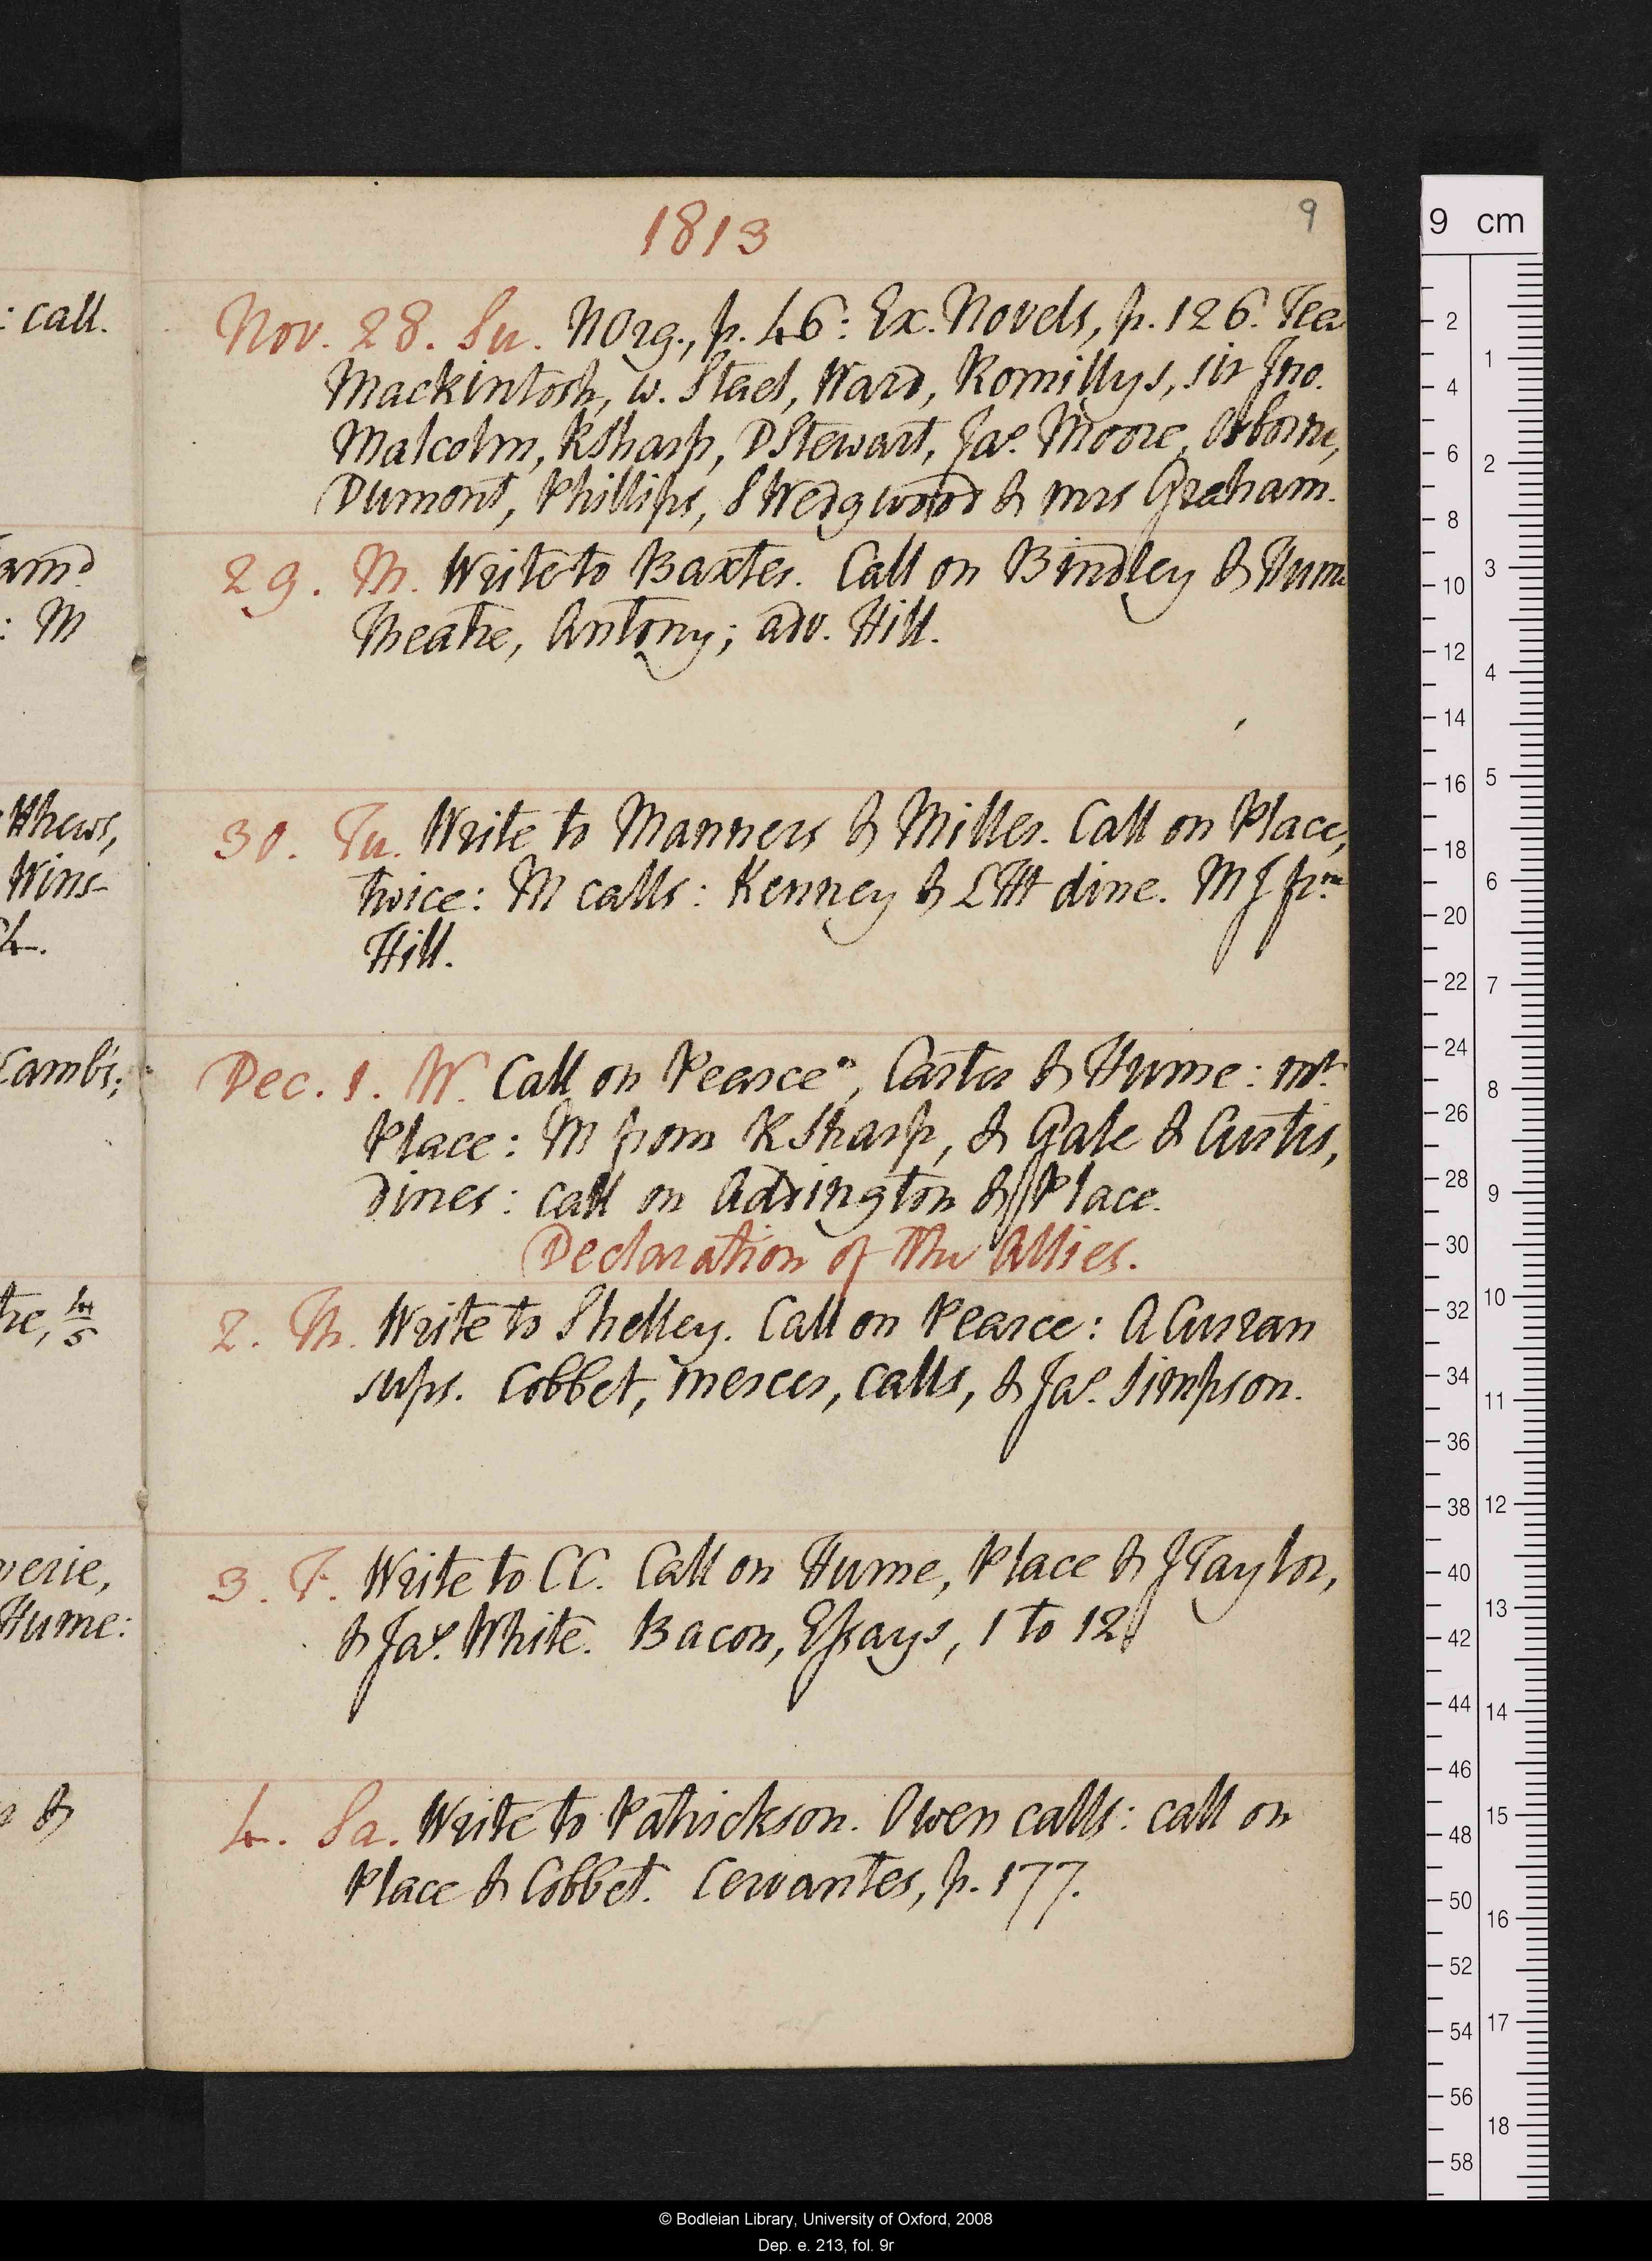 1813
9
Nov. 28. Su. NOrg., p. 46: Ex. Novels, p. 126. Tea
Mackintosh, w. Stael, Ward, Romillys, sir Jno.
Malcolm, RSharp, DStewart, Jas. Moore, Osborne,
Dumont, Phillips, SWedgwood & mrs Graham.
29. M. Write to Baxter. Call on Bindley & Hume
Theatre, Antony; adv. Hill.
30. Tu. Write to Manners & Miller. Call on Place,
twice: M calls: Kenney & LHt dine. MJ fm
Hill.
Dec. 1. W. Call on Pearce°, Carter & Hume: mt.
Place: M from RSharp, & Gale & Curtis,
dines: call on Adrington & Place.
Declaration of the Allies.
2. Th. Write to Shelley. Call on Pearce: A Curran
sups. Cobbet, mercer, calls, & Jas. Simpson.
3. F. Write to CC. Call on Hume, Place & JTaylor,
& Jas. White. Bacon, Essays, 1 to 12
4. Sa. Write to Patrickson. Owen calls: call on
Place & Cobbet. Cervantes, p. 177.
: call.
: M
thews,
Wins-
4.
Lambs;
tre, 4/5
verie,
Hume:
&
9 cm
2
4
6
8
10
12
14
16
18
20
22
24
26
28
30
32
34
36
38
40
42
44
46
48
50
52
54
56
58
1
2
3
4
5
6
7
8
9
10
11
12
13
14
15
16
17
18
© Bodleian Library, University of Oxford, 2008
Dep. e. 213, fol. 9r